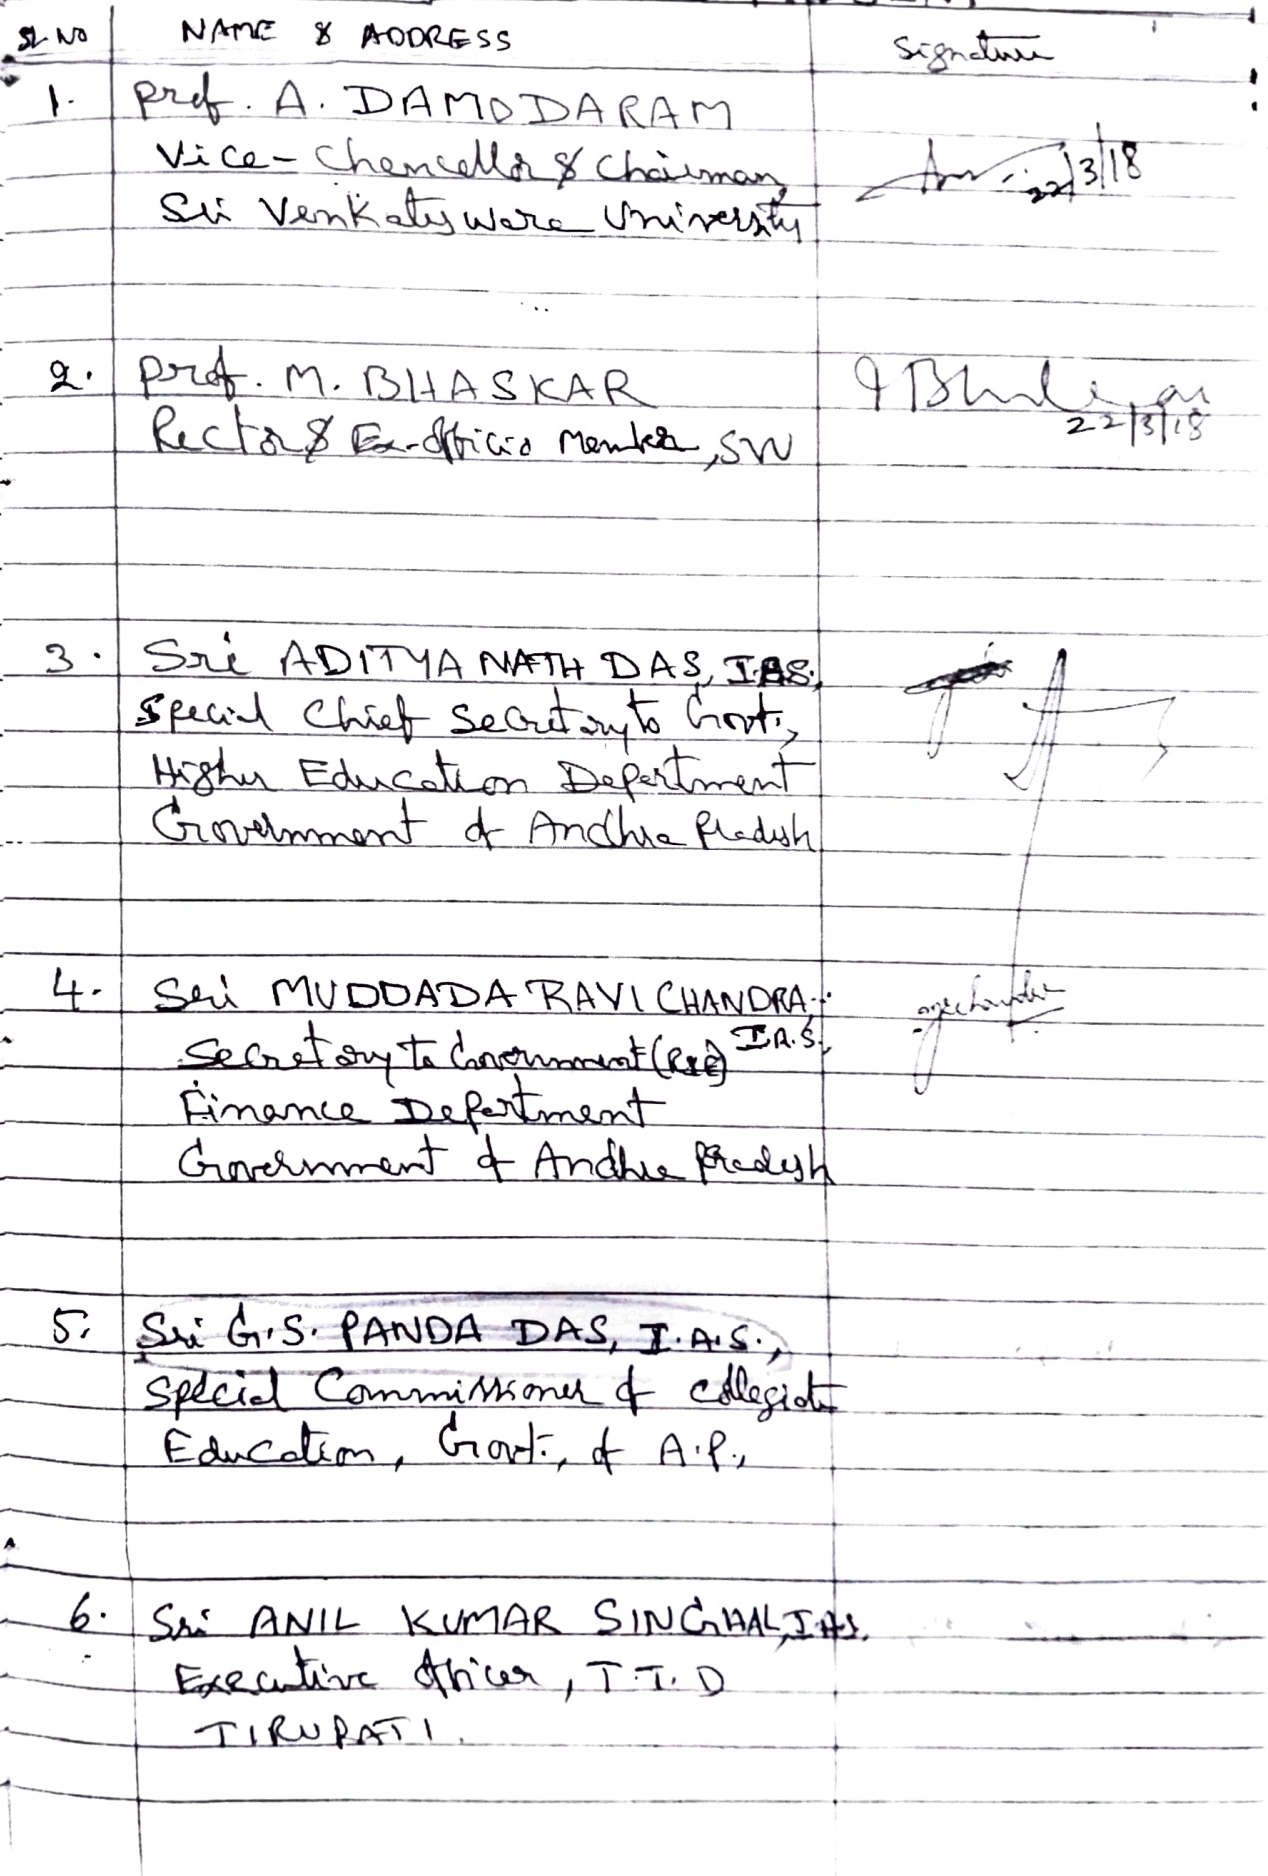 SL NO NAME & ADDRESS Signature
1. Prof. A. DAMODARAM
Vice-Chancellor & Chairman,
Sri Venkateswara University
22/3/18
2. Prof. M. BHASKAR
Rector & Ex-officio Member, SVU
22/3/18
3. Sri ADITYA NATH DAS, I.A.S.,
Special Chief Secretary to Govt.,
Higher Education Department
Government of Andhra Pradesh
4. Sri MUDDADA RAVI CHANDRA,
I.A.S.,
Secretary to Government (R&E)
Finance Department
Government of Andhra Pradesh
5. Sri G.S. PANDA DAS, I.A.S.,
Special Commissioner of Collegiate
Education, Govt., of A.P.,
6. Sri ANIL KUMAR SINGHAL, I.A.S.
Executive Officer, T.T.D
TIRUPATI.